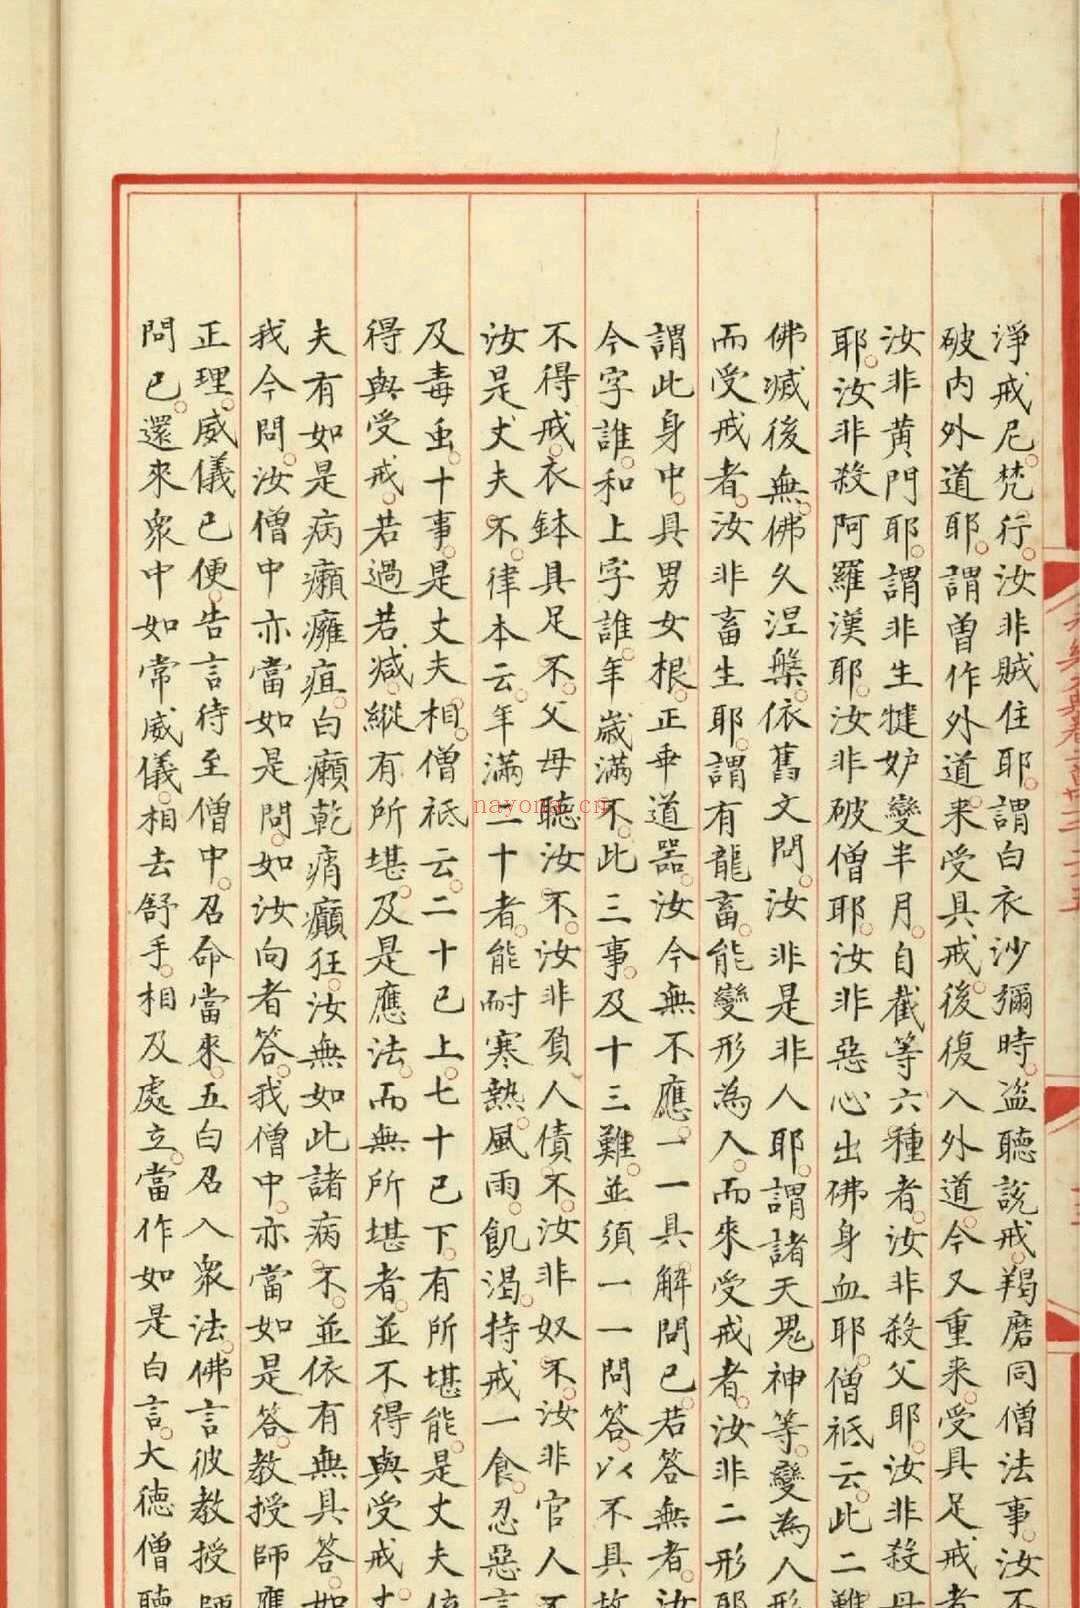 淨戒尼梵行。汝非賊住耶。謂白衣沙彌時。盜聽說戒。羯磨同僧法事。汝不
破內外道耶。謂曾作外道。來受具戒。後復入外道。今又重來。受具足戒者
汝非黃門耶。謂非生犍妒變半月。自截等六種者。汝非殺父耶。汝非殺母
耶。汝非殺阿羅漢耶。汝非破僧耶。汝非惡心出佛身血耶。僧祇云。此二難
佛滅後無。佛久涅槃。依舊文問。汝非是非人耶。謂諸天鬼神等。變為人形
而受戒者。汝非畜生耶。謂有龍畜。能變形為人。而來受戒者。汝非二形耶
謂此身中。具男女根。正乖道器。汝今無不應。一一具解問已。若答無者。汝
今字誰。和上字誰。年歲滿不。此三事。及十三難。並須一一問答。以不具故
不得戒。衣鉢具足不。父母聽汝不。汝非負人債不。汝非奴不。汝非官人不
汝是丈夫不。律本云。年滿二十者。能耐寒熱。風雨。飢渴。持戒一食。忍惡言
及毒虫。十事。是丈夫相。僧祇云。二十已上。七十已下。有所堪能。是丈夫位
得與受戒。若過若減。縱有所堪。及是應法。而無所堪者。並不得與受戒。丈
夫有如是病。癩癰疽。白癩乾痟癲狂。汝無如此諸病不。並依有無具答。如
我今問。汝僧中亦當如是問。如汝向者答。我僧中。亦當如是答。教授師應
正理。威儀已便。告言待至僧中。召命當來。五白召入眾法。佛言彼教授師
問已。還來眾中如常威儀。相去舒手。相及處立。當作如是白言。大德僧聽
nayona.cn